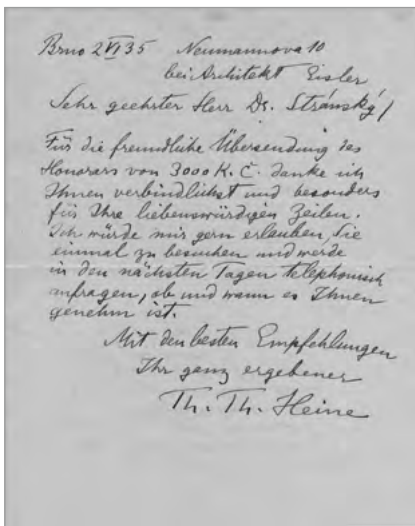 Brno 2 VI 35 Neumannova 10
bei Architekt Eisler
Sehr geehrter Herr Dr. Stránský!
Für die freundliche Übersendung des
Honorars von 3000 K. Č. danke ich
Ihnen verbindlichst und besonders
für Ihre liebenswürdigen Zeilen.
Ich würde mir gern erlauben, Sie
einmal zu besuchen und werde
in den nächsten Tagen telephonisch
anfragen, ob und wann es Ihnen
genehm ist.
Mit den besten Empfehlungen
Ihr ganz ergebener
Th. Th. Heine